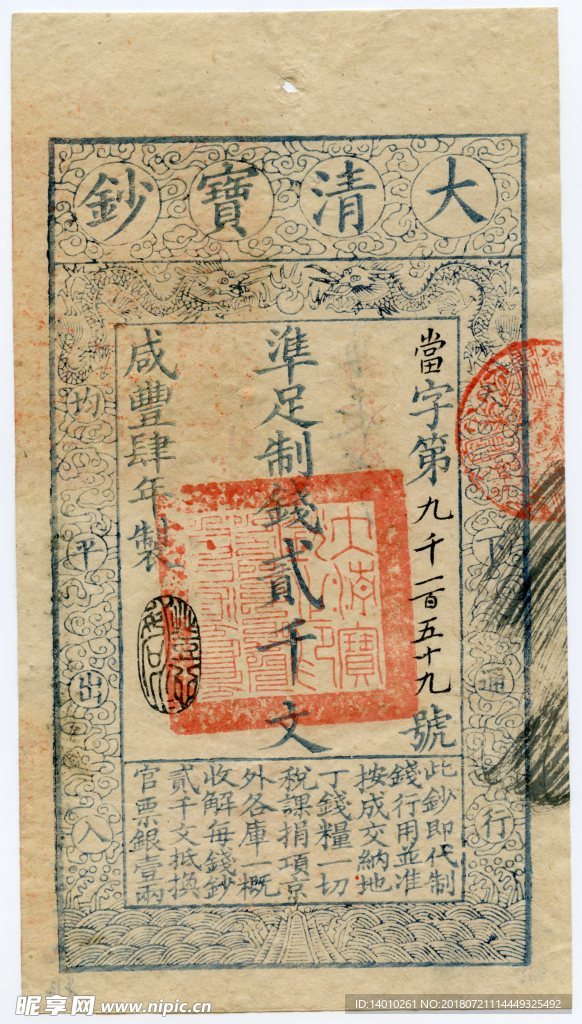 大清寶鈔
當字第九千一百五十九號
準足制錢貳千文
咸豐肆年製
天下通行
均平出入
此鈔即代制
錢行用並准
按成交納地
丁錢糧一切
稅課捐項京
外各庫一概
收解每錢鈔
貳千文抵換
官票銀壹兩
昵享网 www.nipic.cn
ID:14010261 NO:20180721114449325492